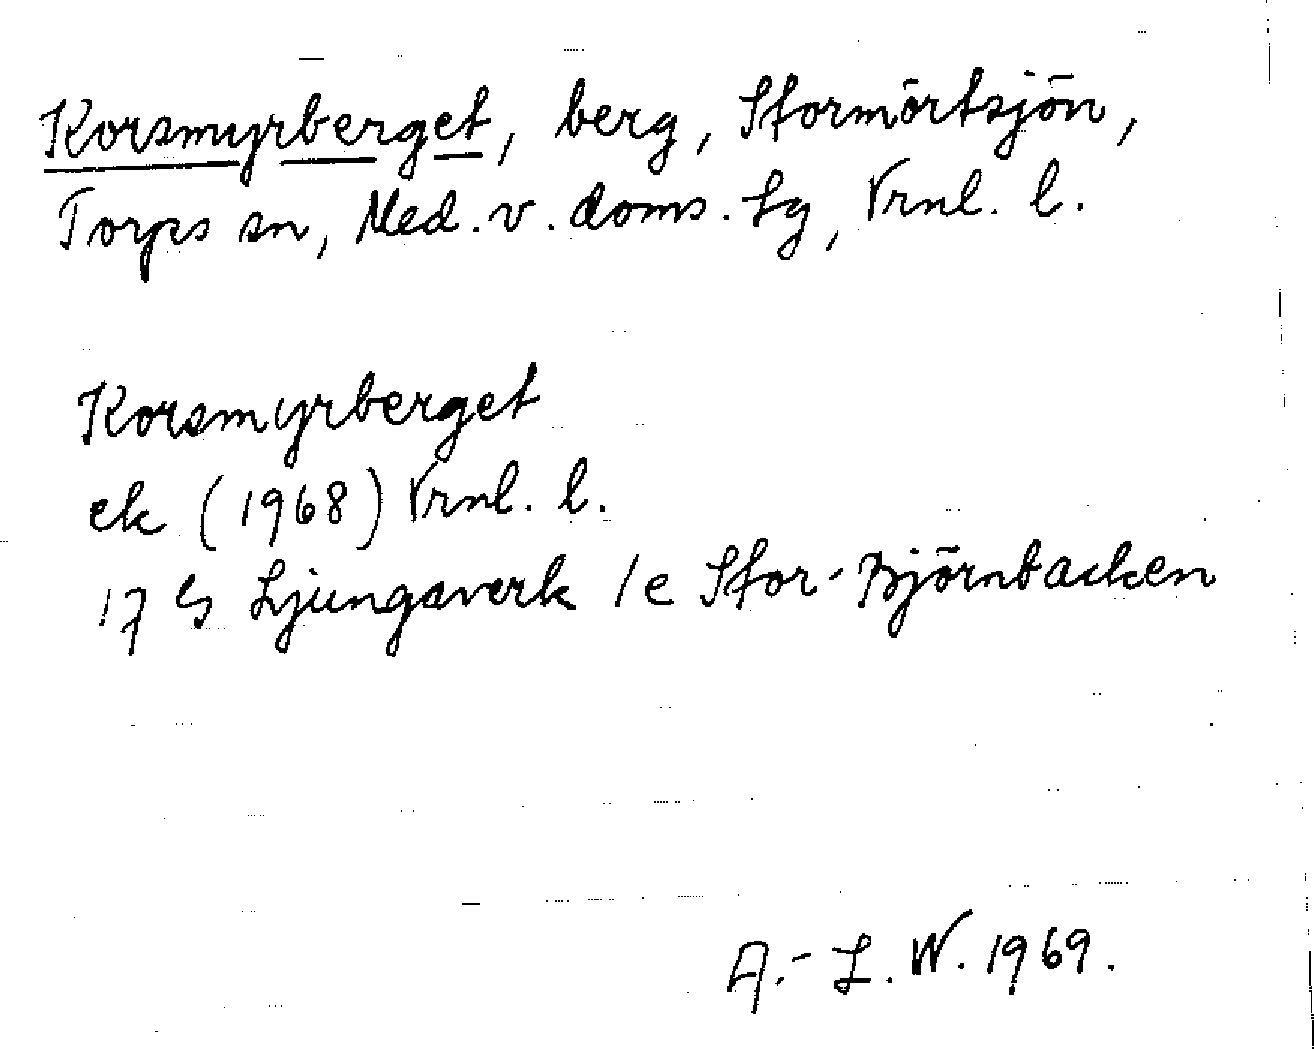 Korsmyrberget, berg, Stormörtsjön,
Torps sn, Med. v. doms. tg, Vrnl. l.
Korsmyrberget
ek (1968) Vrnl. l.
17 G Ljungaverk 1e Stor-Björnbacken
A.-L. W. 1969.